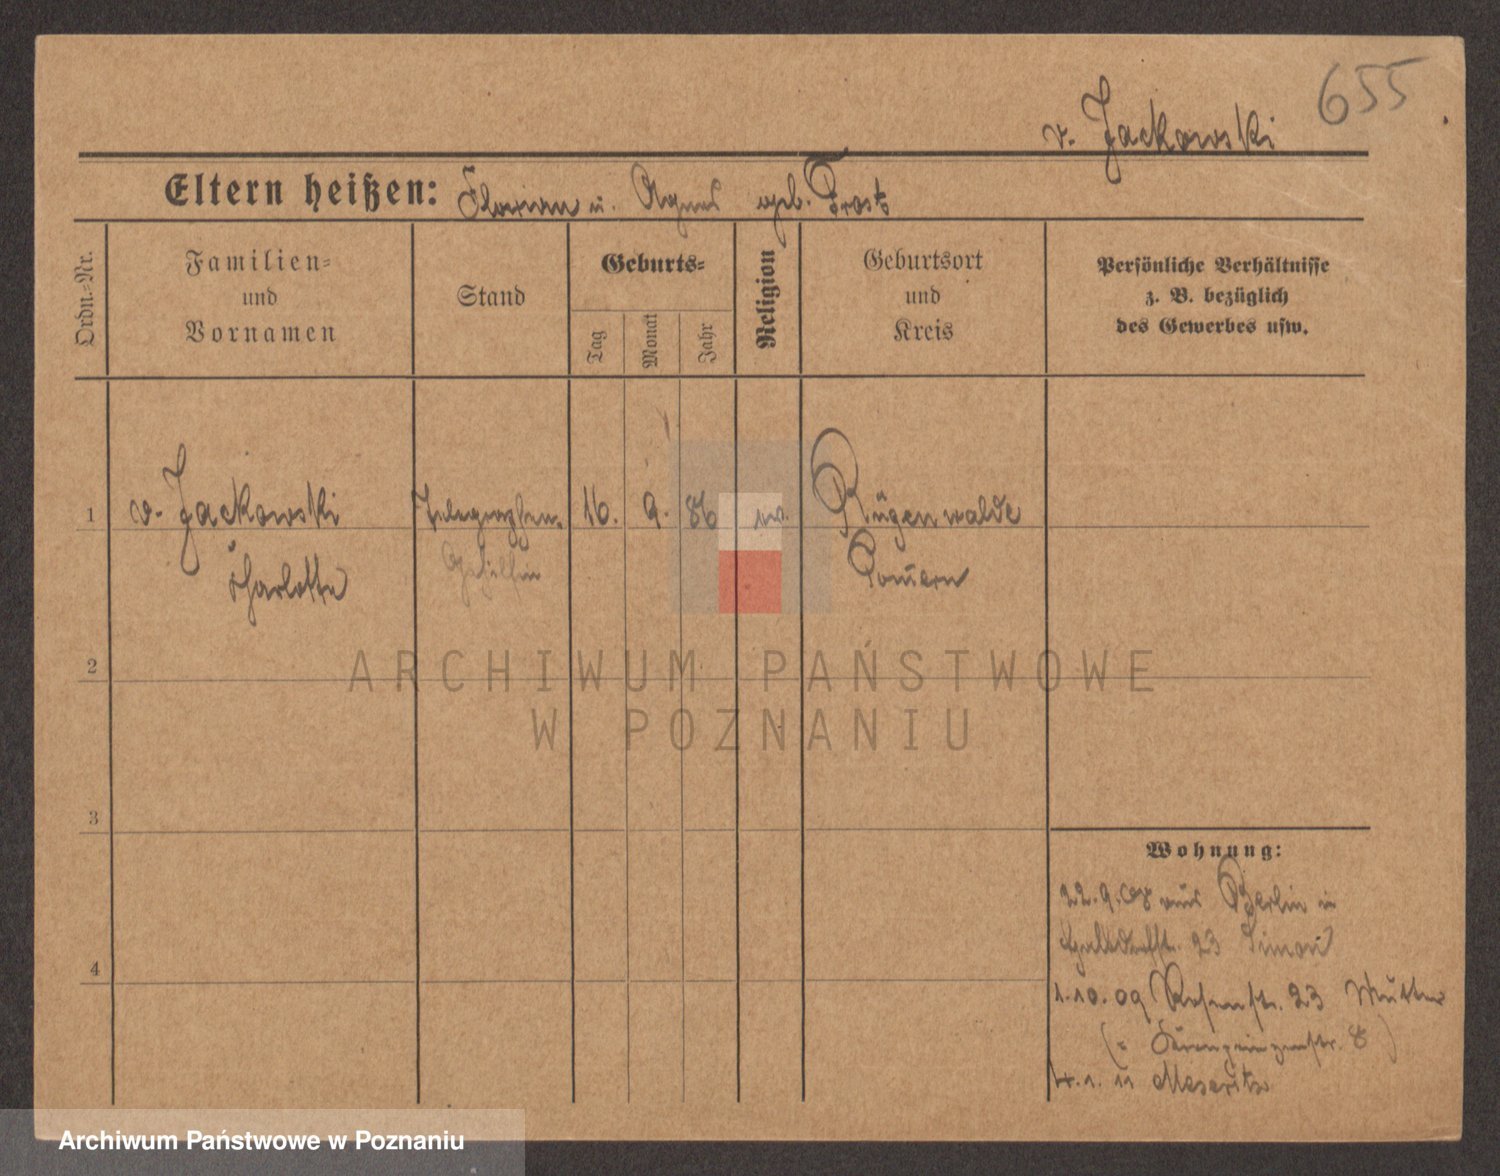 655
v. Jackowski
Eltern heißen: Florian u. Agnes geb. Frost
Ordn.-Nr.
Familien-
und
Vornamen
Stand
Geburts-
Tag
Monat
Jahr
Religion
Geburtsort
und
Kreis
Persönliche Verhältnisse
z. B. bezüglich
des Gewerbes usw.
1
v. Jackowski
Charlotte
Telegraphen-
Gehilfin
16. 9. 86
Rügenwalde
Pomern
2
3
4
Wohnung:
22.9.08 aus Berlin in
23 Simon
1.10.09 Rosenstr. 23 Mutter
(= Kronprinzenstr. 8)
4.1.11 Meseritz
ARCHIWUM PAŃSTWOWE
W POZNANIU
Archiwum Państwowe w Poznaniu